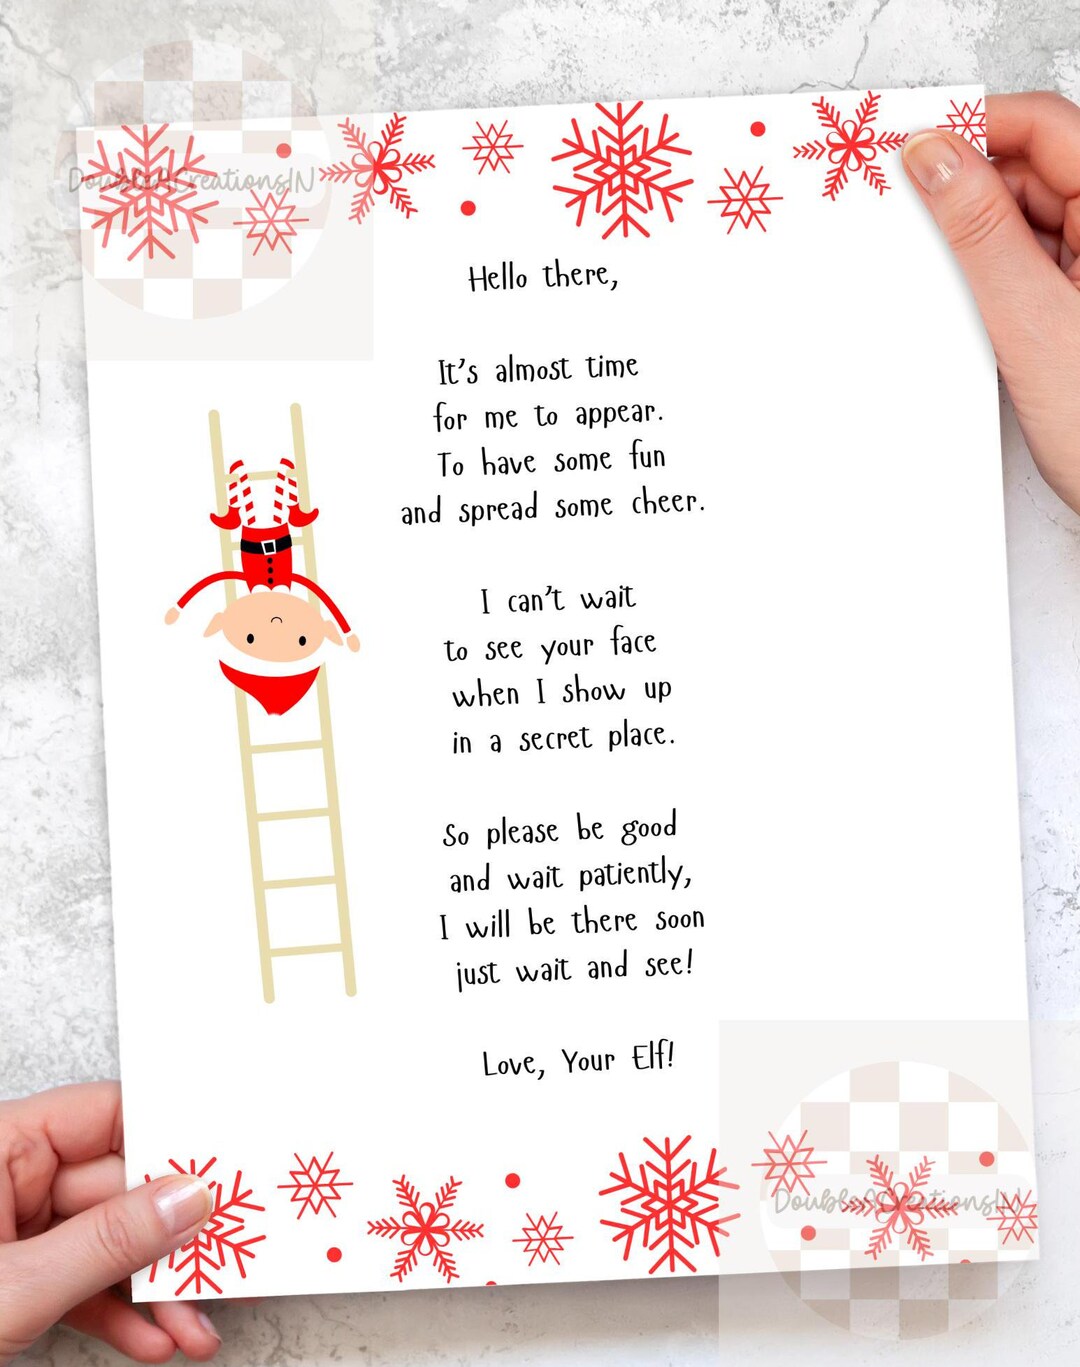 DoubleACreationsIN
Hello there,
It's almost time
for me to appear.
To have some fun
and spread some cheer.
I can't wait
to see your face
when I show up
in a secret place.
So please be good
and wait patiently,
I will be there soon
just wait and see!
Love, Your Elf!
DoubleACreationsIN